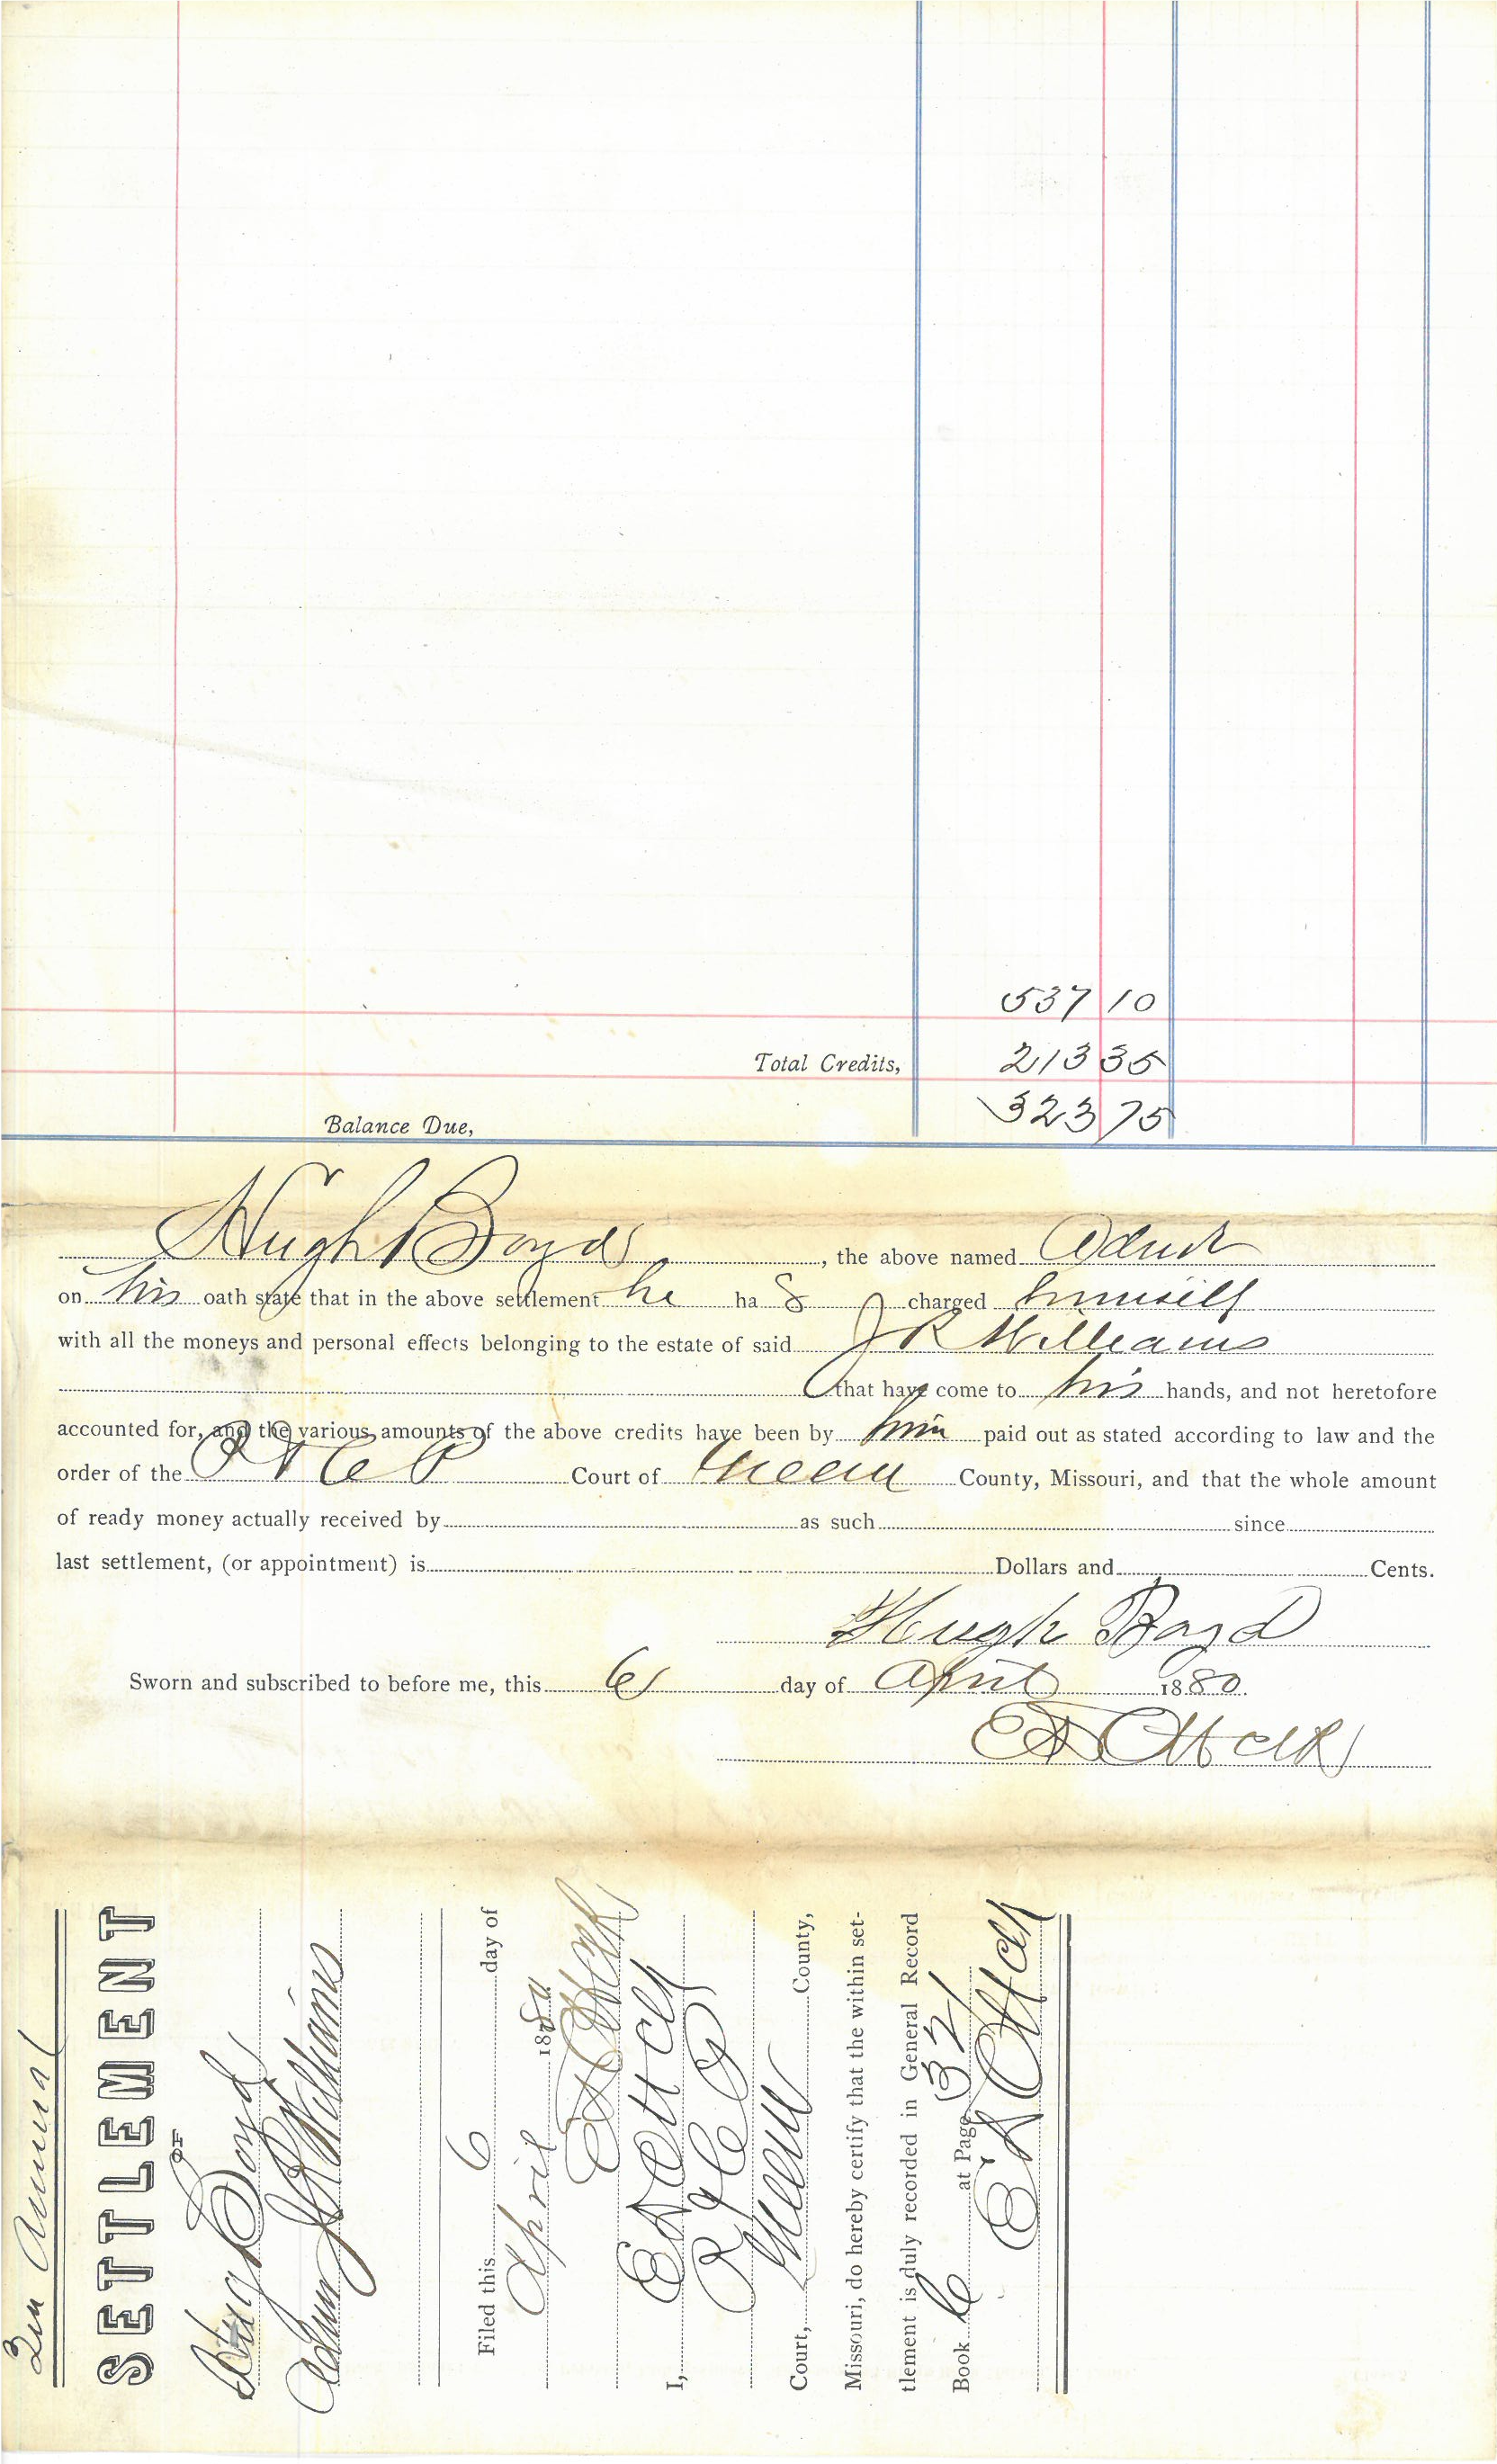 537 10
Total Credits, 213 35
Balance Due, 323 75
Hugh Boyd, the above named Admr
on his oath state that in the above settlement he has charged himself
with all the moneys and personal effects belonging to the estate of said J R Williams
that have come to his hands, and not heretofore
accounted for, and the various amounts of the above credits have been by him paid out as stated according to law and the
order of the Court of Greene County, Missouri, and that the whole amount
of ready money actually received by as such since
last settlement, (or appointment) is Dollars and Cents.
Hugh Boyd
Sworn and subscribed to before me, this 6 day of April 1880.
2nd Annual
SETTLEMENT
OF
Hugh Boyd
Admr J R Williams
Filed this 6 day of
April 1880
I,
Court, Greene County,
Missouri, do hereby certify that the within set-
tlement is duly recorded in General Record
Book C at Page 321